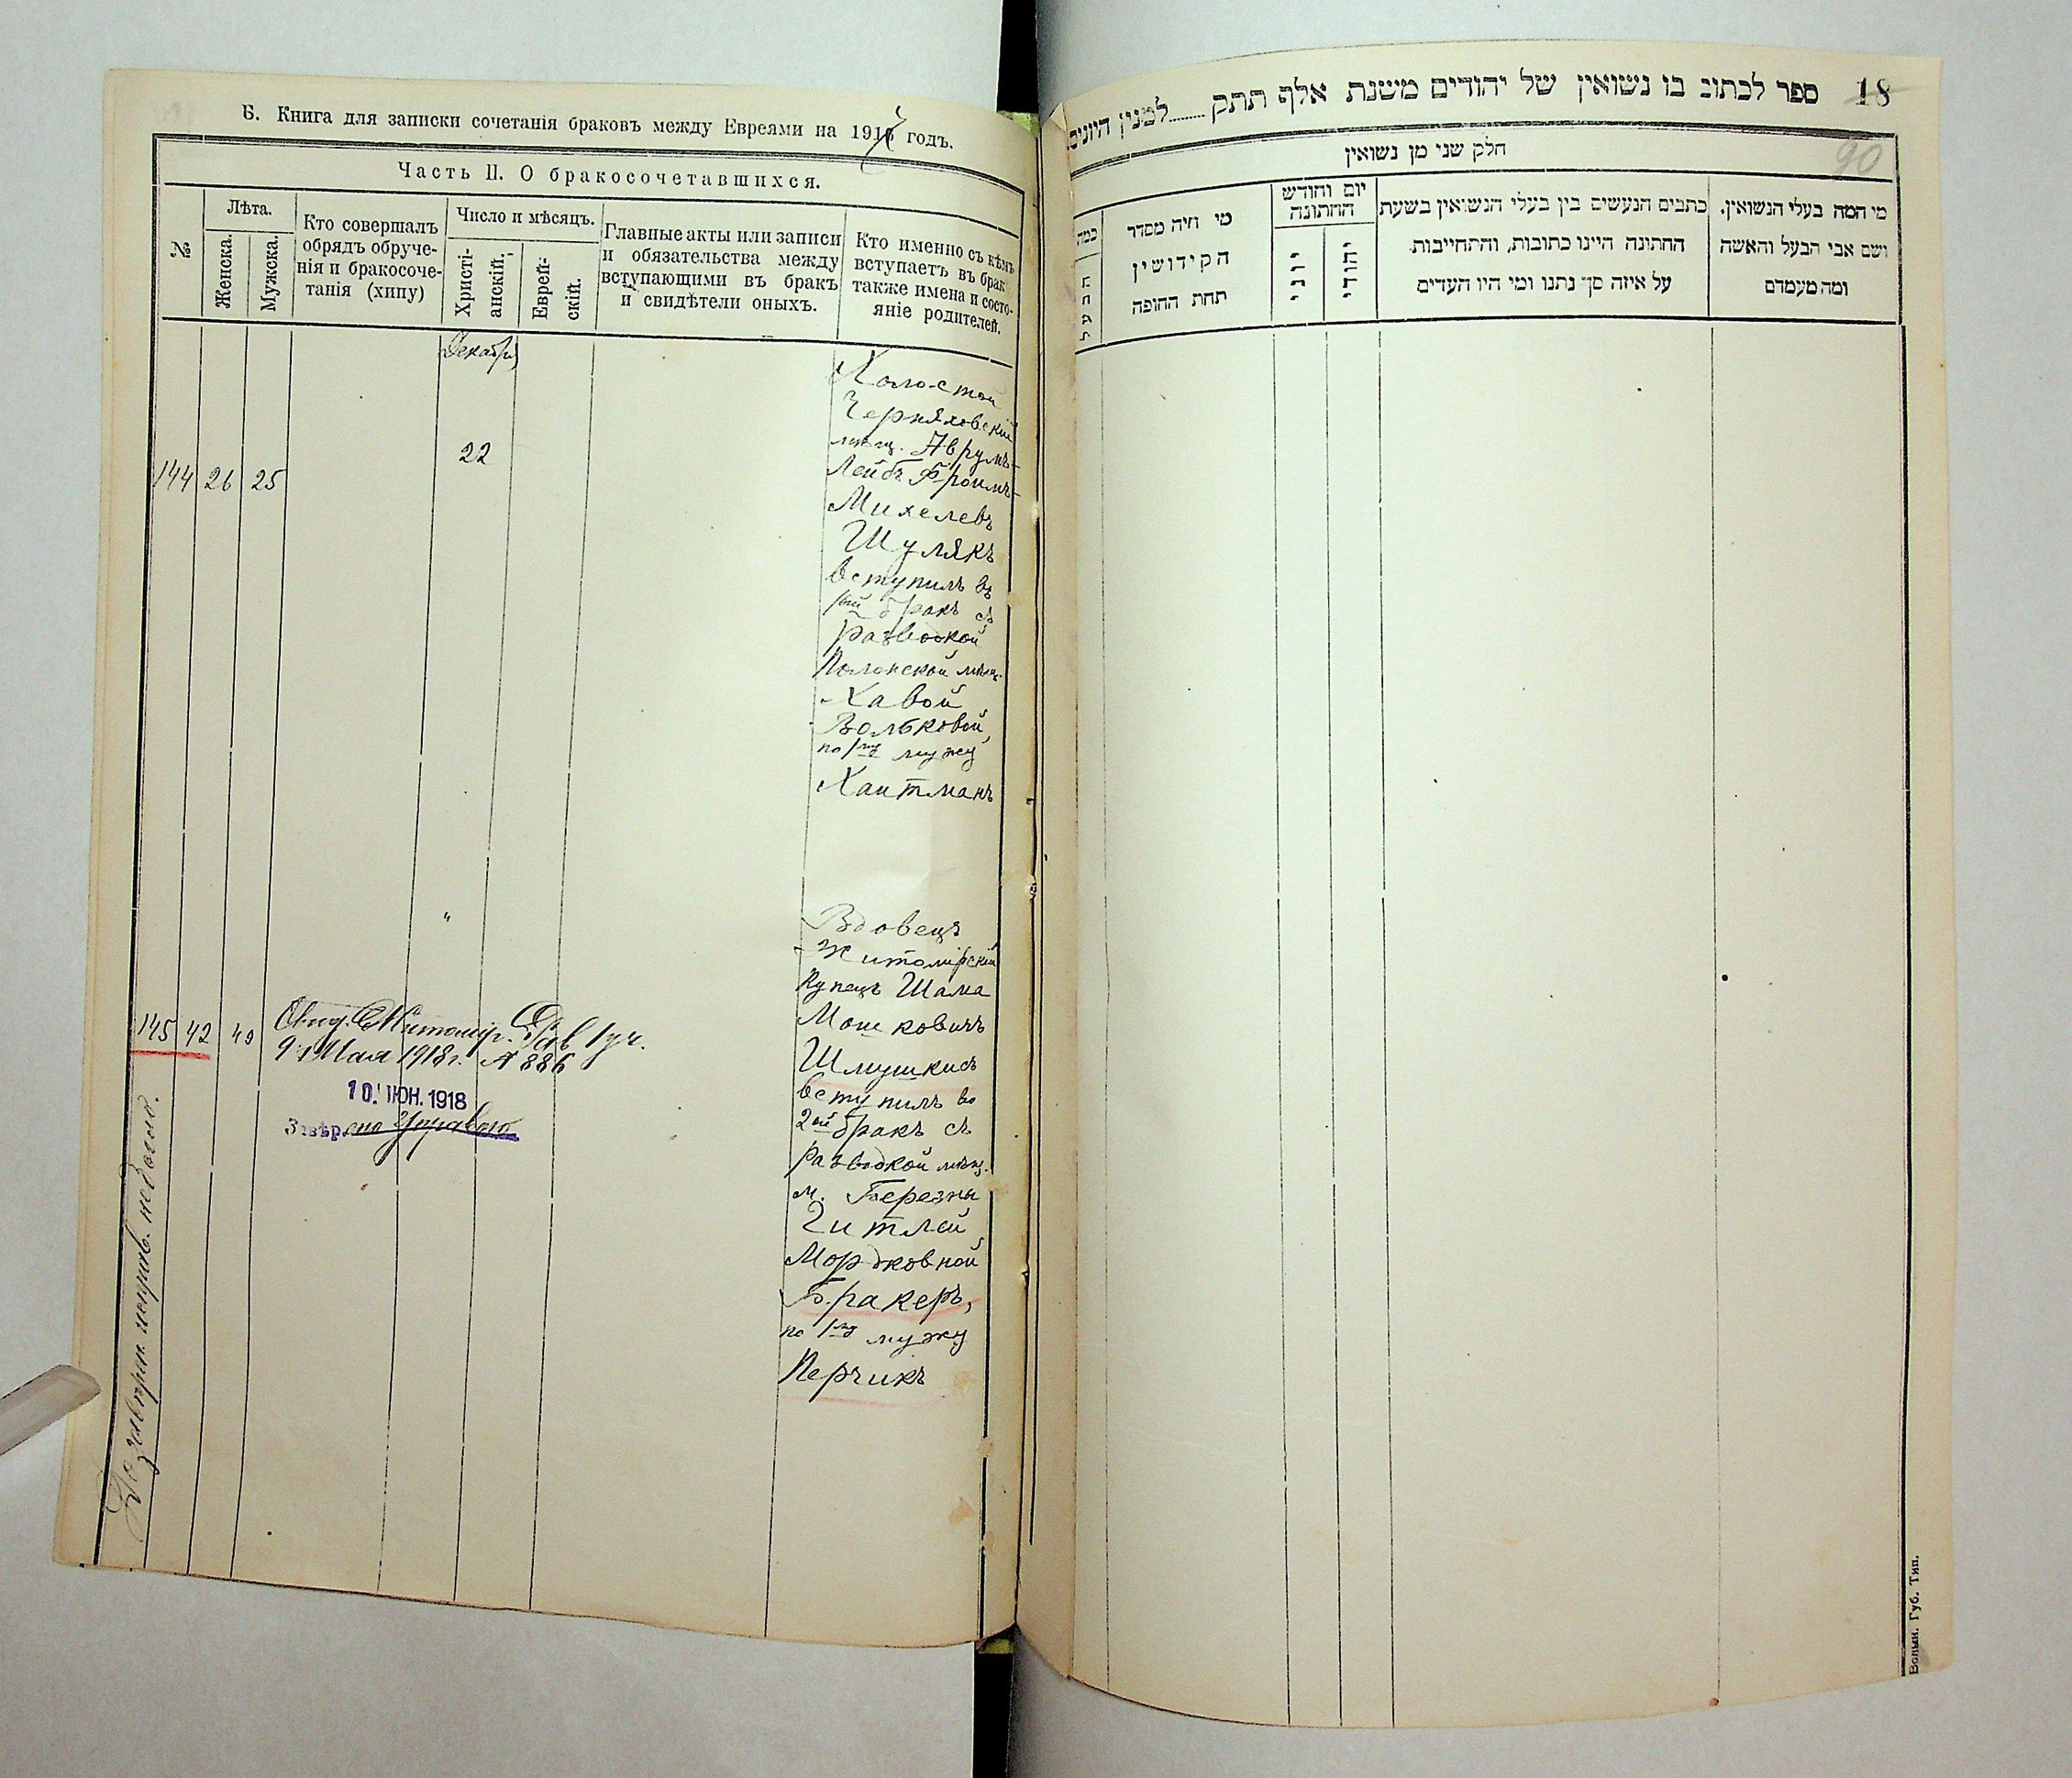 Б. Книга для записки сочетанія браковъ между Евреями на 1917 годъ.
Часть II. О бракосочетавшихся.
№
Лѣта.
Женска.
Мужска.
Кто совершалъ
обрядъ обруче-
нія и бракосоче-
танія (хипу)
Число и мѣсяцъ.
Христі-
анскій.
Еврей-
скій.
Главные акты или записи
и обязательства между
вступающими въ бракъ
и свидѣтели оныхъ.
Кто именно съ кѣмъ
вступаетъ въ бракъ
также имена и состо-
яніе родителей.
Декабрь
144 26 25
22
Холостой
Черняховскій
мѣщ. Аврумъ-
Лейбъ Фроимъ-
Михелевъ
Шулякъ
вступилъ въ
1ый бракъ съ
разводкой
Полонской мѣщ.
Хавой
Вольковой,
по 1му мужу
Хаитманъ
145 42 49
"
Свид. Житомір. Рав 1 уч.
9 Мая 1918г. № 886
10. ІЮН. 1918
Завѣрено Управою
Вдовецъ
Житомірскій
купецъ Шама
Мошковичъ
Шмушкисъ
вступилъ во
2ой бракъ съ
разводкой мѣщ.
м. Березны
Гитлей
Мордковной
Бракеръ,
по 1му мужу
Перчикъ
18
ספר לכתוב בו נשואין של יהודים משנת אלף תתק........למנין היונים
90
חלק שני מן נשואין
מי המה בעלי הנשואין.
ושם אבי הבעל והאשה
ומה מעמדם
כתבים הנעשים בין בעלי הנשואין בשעת
החתונה היינו כתובות, והתחייבות
על איזה סך נתנו ומי היו העדים
יום וחודש
החתונה
יהודי
יוני
מי היה מסדר
הקידושין
תחת החופה
כמה
הבעל
Волын. Губ. Тип.